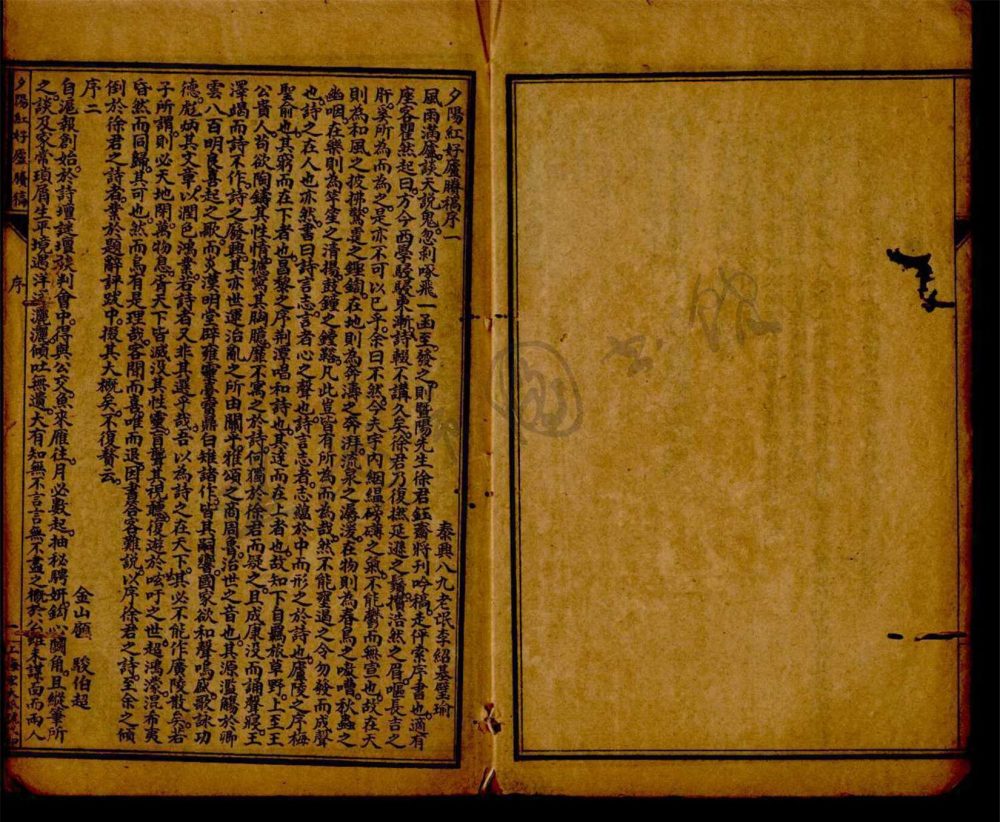 夕陽紅好廬賸稿序一
泰興八九老氓李紹基璧瑜
風雨滿廬談天說鬼忽剝啄飛一函至發之則暨陽先生徐君鈺齋將刊吟稿走伻索序書也適有
座客瞿然起曰方今西學駸駸東漸詩輟不講久矣徐君乃復撫延遜之鬚攢浩然之眉嘔長吉之
肝奚所為而為之是亦不可以已乎余曰不然今夫宇內絪縕磅礴之氣不能鬱而無宣也故在天
則為和風之披拂驚霆之鏗鍧在地則為奔濤之奔湃流泉之潺湲在物則為春鳥之嘐嘐秋蟲之
幽咽在樂則為笙簧之清揚鼓鐘之鏜鞳凡此豈有所為而為哉然不能壅遏之令勿發而成聲
也詩之在人也亦然書曰詩言志言者心之聲也詩言志者志蘊於中而形之於詩也廬陵之序梅
聖俞也其窮而在下者也昌黎之序荊潭唱和詩也其達而在上者也故知下自羈旅草野上至王
公貴人苟欲陶鑄其性情攄寫其胸臆靡不寓之於詩何獨於徐君而疑之且成康沒而誦聲寢王
澤竭而詩不作詩之廢興其亦世運治亂之所由關乎雅頌之商周魯治世之音也其源濫觴於卿
雲八百明良喜起之歌而炎漢明堂辟雍靈臺寶鼎白雉諸作皆其嗣響國家欲和聲鳴盛歌詠功
德彪炳其文章以潤色鴻業若詩者又非其選乎哉吾以為詩之在天下其必不能作廣陵散矣若
子所謂則必天地閉萬物息青天下皆滅沒其性靈盲聾其視聽復遊於呿吁之世超鴻濛混希夷
昏然而同歸其可也然而烏有是理哉客聞而喜唯而退因書答客難說以序徐君之詩至余之傾
倒於徐君之詩者業於題辭評跋中掇其大概矣不復贅云
序二
金山顧 駿伯超
自滬報創始於詩壇謎壇談判會中得與公交魚來雁往月必數起抽秘騁妍鉤心鬬角且縱筆所
之談及家常瑣屑生平境遇洋洋灑灑傾吐無遺大有知無不言言無不盡之概於公雖未謀面而兩人
夕陽紅好廬賸稿
序
一